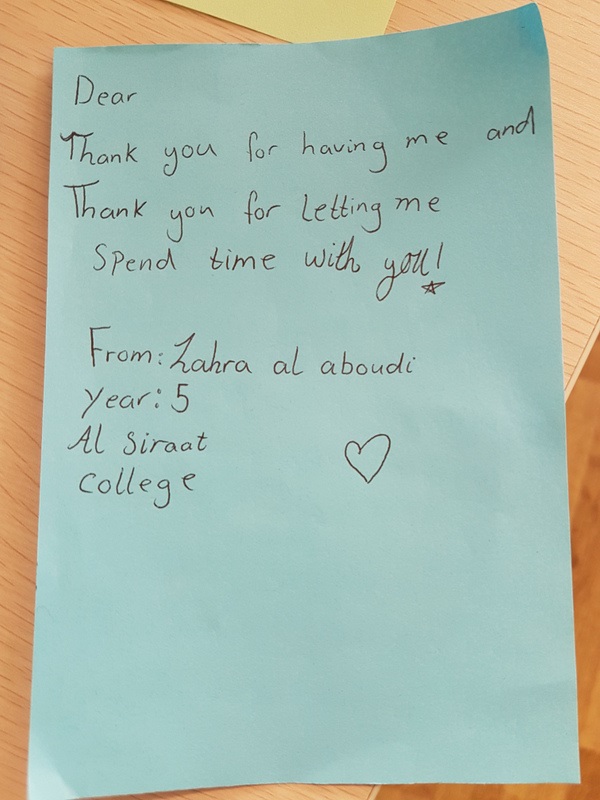 Dear
Thank you for having me and
Thank you for letting me
Spend time with you!
From: Zahra al aboudi
Year: 5
Al Siraat
College